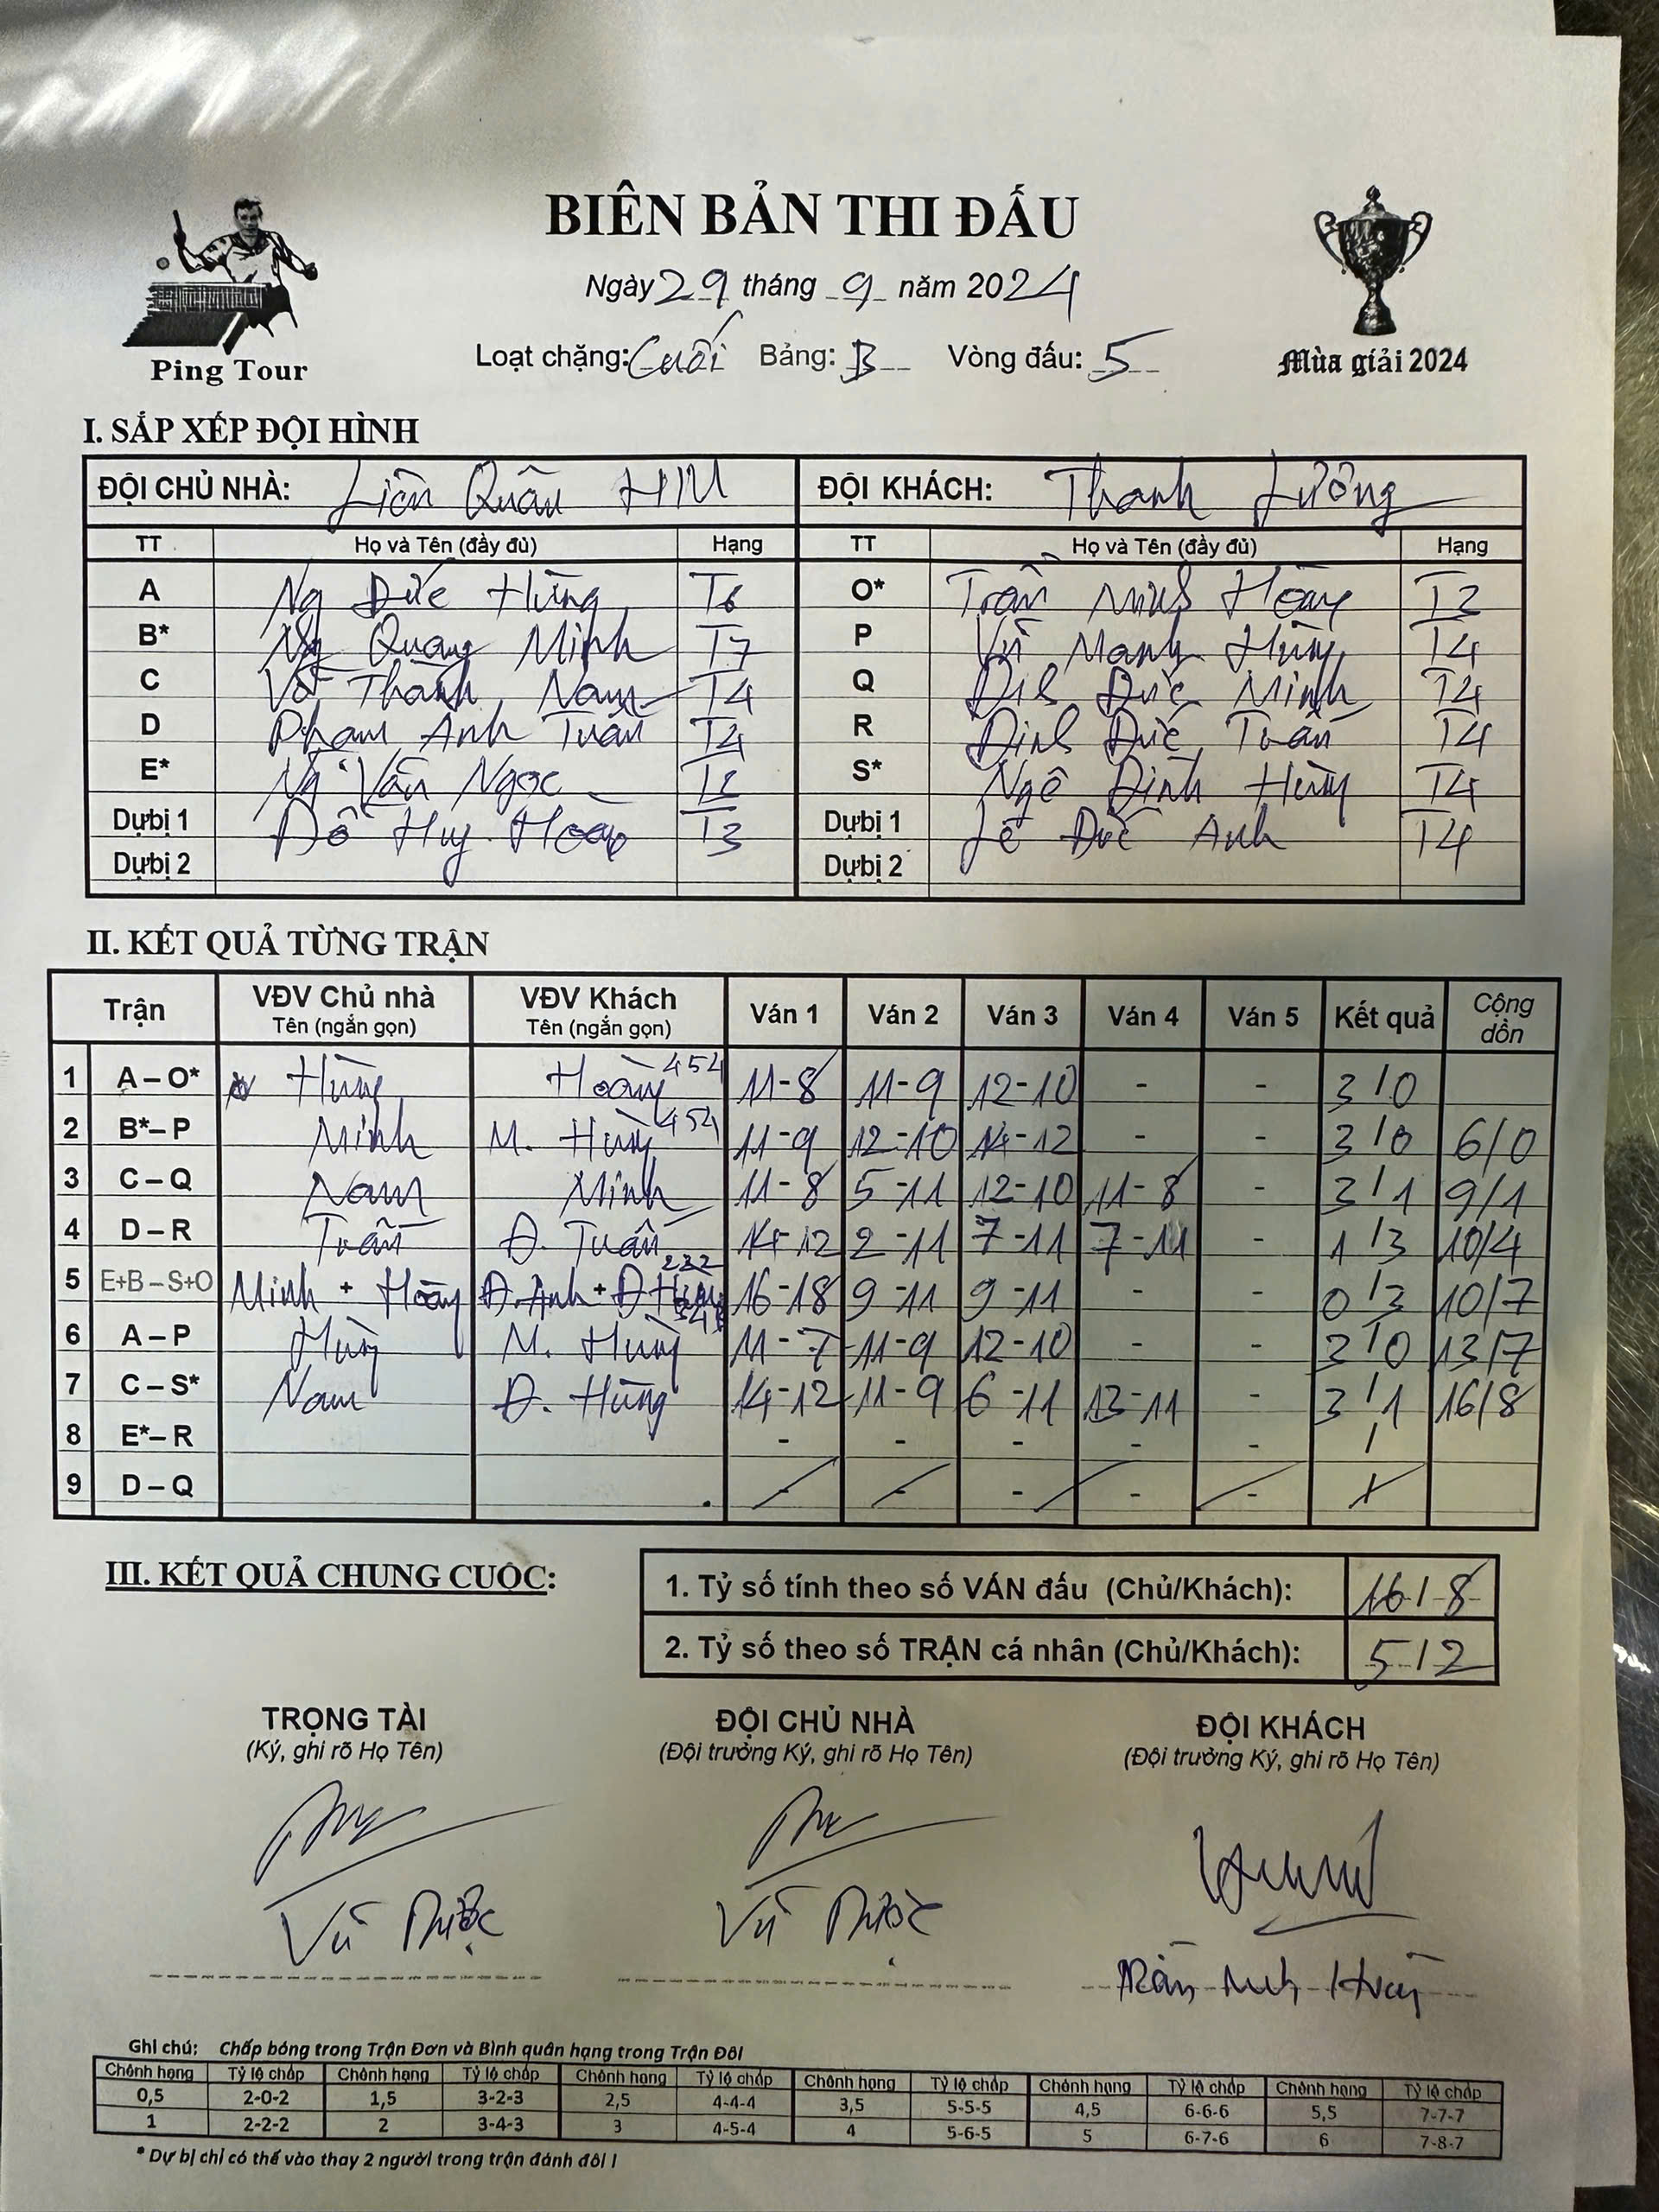 BIÊN BẢN THI ĐẤU
Ngày 29 tháng 9 năm 2024
Ping Tour
Loạt chặng: Cuối Bảng: B Vòng đấu: 5
Mùa giải 2024
I. SẮP XẾP ĐỘI HÌNH
ĐỘI CHỦ NHÀ: Liên Quân HM ĐỘI KHÁCH: Thanh Lương
TT Họ và Tên (đầy đủ) Hạng TT Họ và Tên (đầy đủ) Hạng
A Ng Đức Hùng T6 O* Trần Minh Hoàng
B* Ng Quang Minh T7 P Vũ Mạnh Hùng T4
C Vũ Thành Nam T4 Q Đinh Đức Minh T4
D Phạm Anh Tuấn T4 R Đinh Đức Tuấn T4
E* Ng Văn Ngọc S* Ngô Đình Hùng T4
Dự bị 1 Đỗ Huy Hoàng T3 Dự bị 1 Lê Đức Anh T4
Dự bị 2 Dự bị 2
II. KẾT QUẢ TỪNG TRẬN
Trận VĐV Chủ nhà Tên (ngắn gọn) VĐV Khách Tên (ngắn gọn) Ván 1 Ván 2 Ván 3 Ván 4 Ván 5 Kết quả Cộng dồn
1 A – O* Hùng Hoàng 454 11-8 11-9 12-10 - - 3/0
2 B* – P Minh M. Hùng 454 11-9 12-10 14-12 - - 3/0 6/0
3 C – Q Nam Minh 11-8 5-11 12-10 11-8 - 3/1 9/1
4 D – R Tuấn Đ. Tuấn 14-12 2-11 7-11 7-11 - 1/3 10/4
5 E+B – S+O Minh + Hoàng Đ. Anh + Đ Hùng 232 16-18 9-11 9-11 - - 0/3 10/7
6 A – P Hùng M. Hùng 11-7 11-9 12-10 - - 3/0 13/7
7 C – S* Nam Đ. Hùng 14-12 11-9 6-11 13-11 - 3/1 16/8
8 E* – R - - - - - /
9 D – Q - - - - - /
III. KẾT QUẢ CHUNG CUỘC:
1. Tỷ số tính theo số VÁN đấu (Chủ/Khách): 16/8
2. Tỷ số theo số TRẬN cá nhân (Chủ/Khách): 5/2
TRỌNG TÀI ĐỘI CHỦ NHÀ ĐỘI KHÁCH
(Ký, ghi rõ Họ Tên) (Đội trưởng Ký, ghi rõ Họ Tên) (Đội trưởng Ký, ghi rõ Họ Tên)
Vũ Vũ
Ghi chú: Chấp bóng trong Trận Đơn và Bình quân hạng trong Trận Đôi
Chênh hạng Tỷ lệ chấp Chênh hạng Tỷ lệ chấp Chênh hạng Tỷ lệ chấp Chênh hạng Tỷ lệ chấp Chênh hạng Tỷ lệ chấp Chênh hạng Tỷ lệ chấp
0,5 2-0-2 1,5 3-2-3 2,5 4-4-4 3,5 5-5-5 4,5 6-6-6 5,5 7-7-7
1 2-2-2 2 3-4-3 3 4-5-4 4 5-6-5 5 6-7-6 6 7-8-7
* Dự bị chỉ có thể vào thay 2 người trong trận đánh đôi !